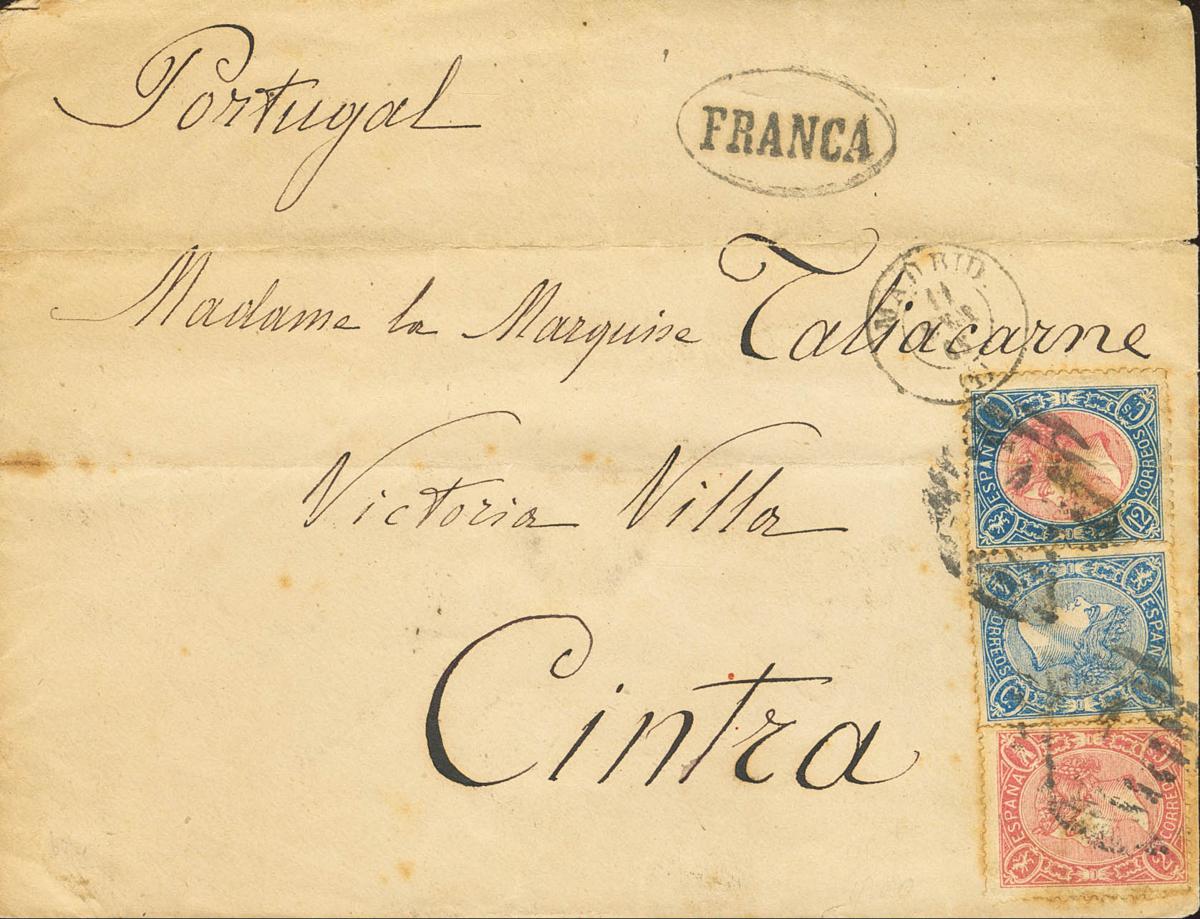 Portugal
FRANCA
MADRID.
11
Madame la Marquise Taliacarne
Victoria Villa
Cintra
ESPAÑA
CORREOS
12 Cs
ESPAÑA
CORREOS
ESPAÑA
CORREOS
2